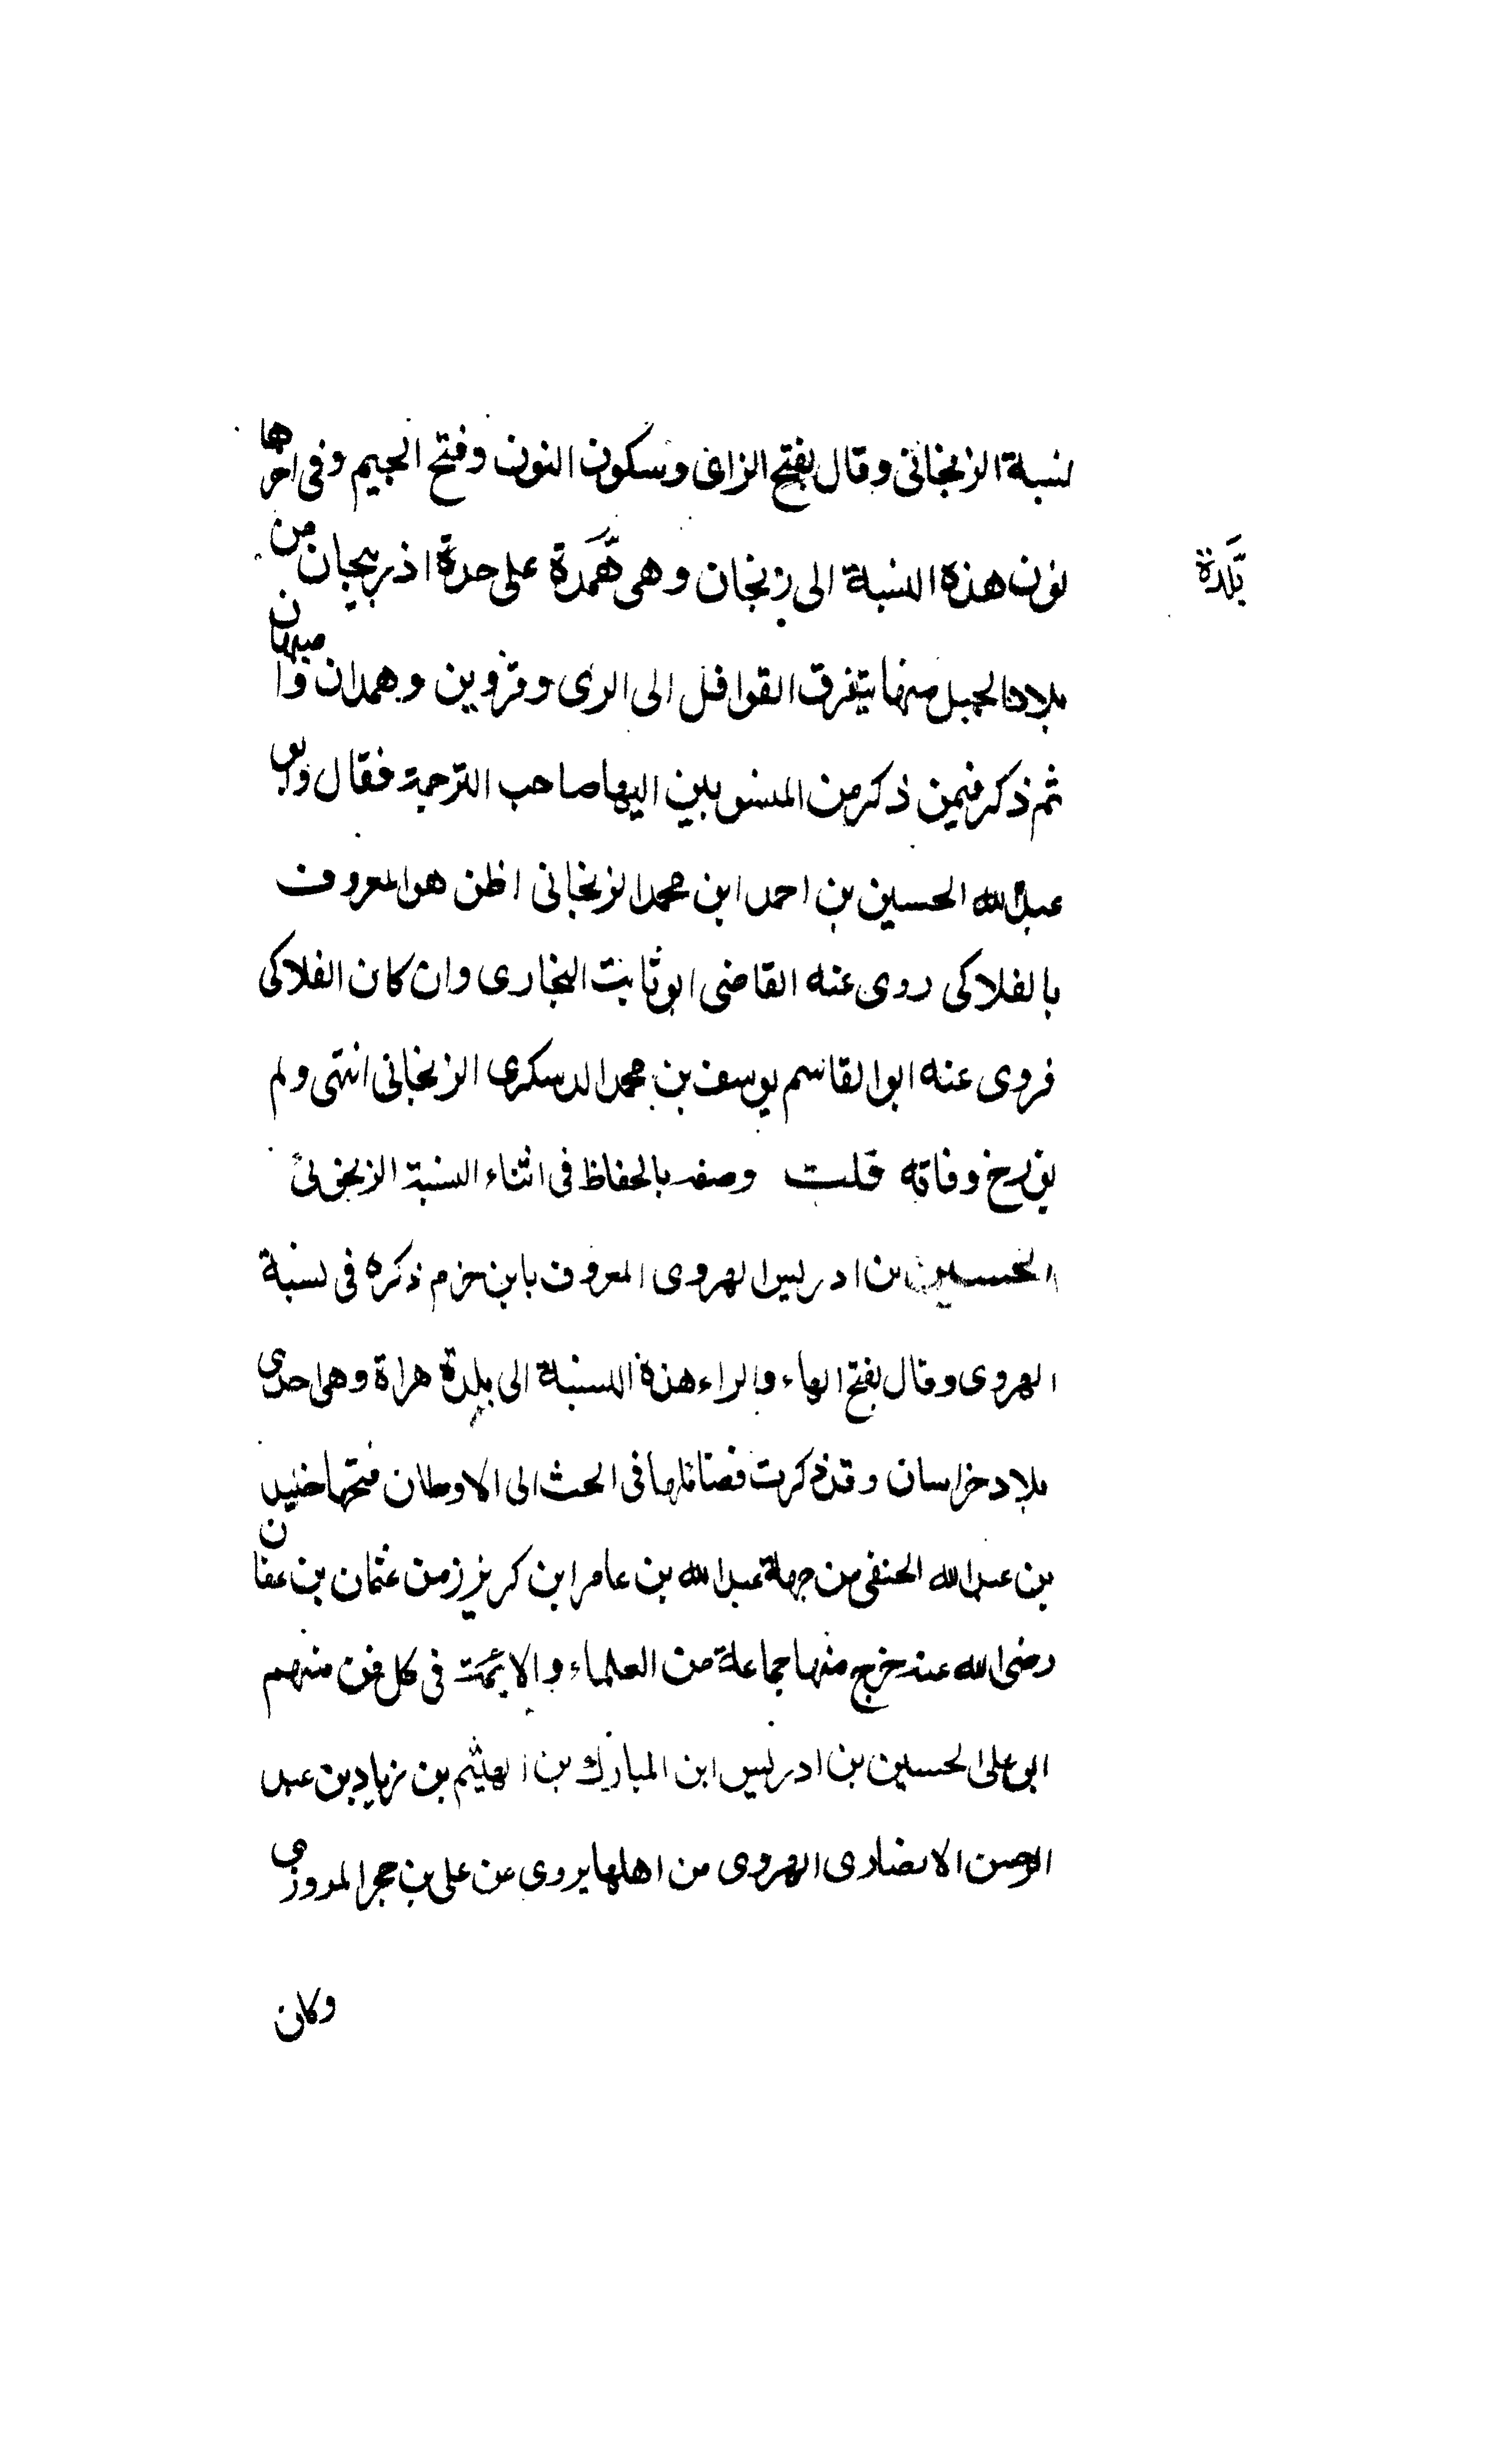 لنسبة الزنجانى وقال بفتح الزاى وسكون النون وفتح الجيم وفى اخرها
نون هذه النسبة الى زنجان وهى همدة على حدة اذربيجان من
بلدة
بلاد الجبل منها يتفرق القوافل الى الرى وقزوين وهمدان واصبهان
ثم ذكر فيمن ذكر من المنسوبين اليها صاحب الترجمة فقال وابو
عبد الله الحسين بن احمد ابن محمد الزنجانى اظن هو المعروف
بالفلاكى روى عنه القاضى ابو ثابت البخارى وان كان الفلاكى
فروى عنه ابو القاسم يوسف بن محمد الدسكرى الزنجانى انتهى ولم
يورخ وفاته قلت وصفه بالحفاظ فى اثناء النسبة
الحسين بن ادريس الهروى المعروف بابن خرم ذكره فى نسبة
الهروى وقال بفتح الهاء والراء هذه النسبة الى بلدة هراة وهى احدى
بلاد خراسان وقد ذكرت فضائلها فى الحث الى الاوطان فتحها خليد
بن عبد الله الحنفى من جهة عبد الله بن عامر ابن كريز زمن عثمان بن عفان
رضى الله عنه خرج منها جماعة من العلماء والايمة فى كل فن منهم
ابى على الحسين بن ادريس ابن المبارك بن الهيثم بن زياد بن عبد
الرحمن الانصارى الهروى من اهلها يروى عن على بن حجر المروزى
وكان